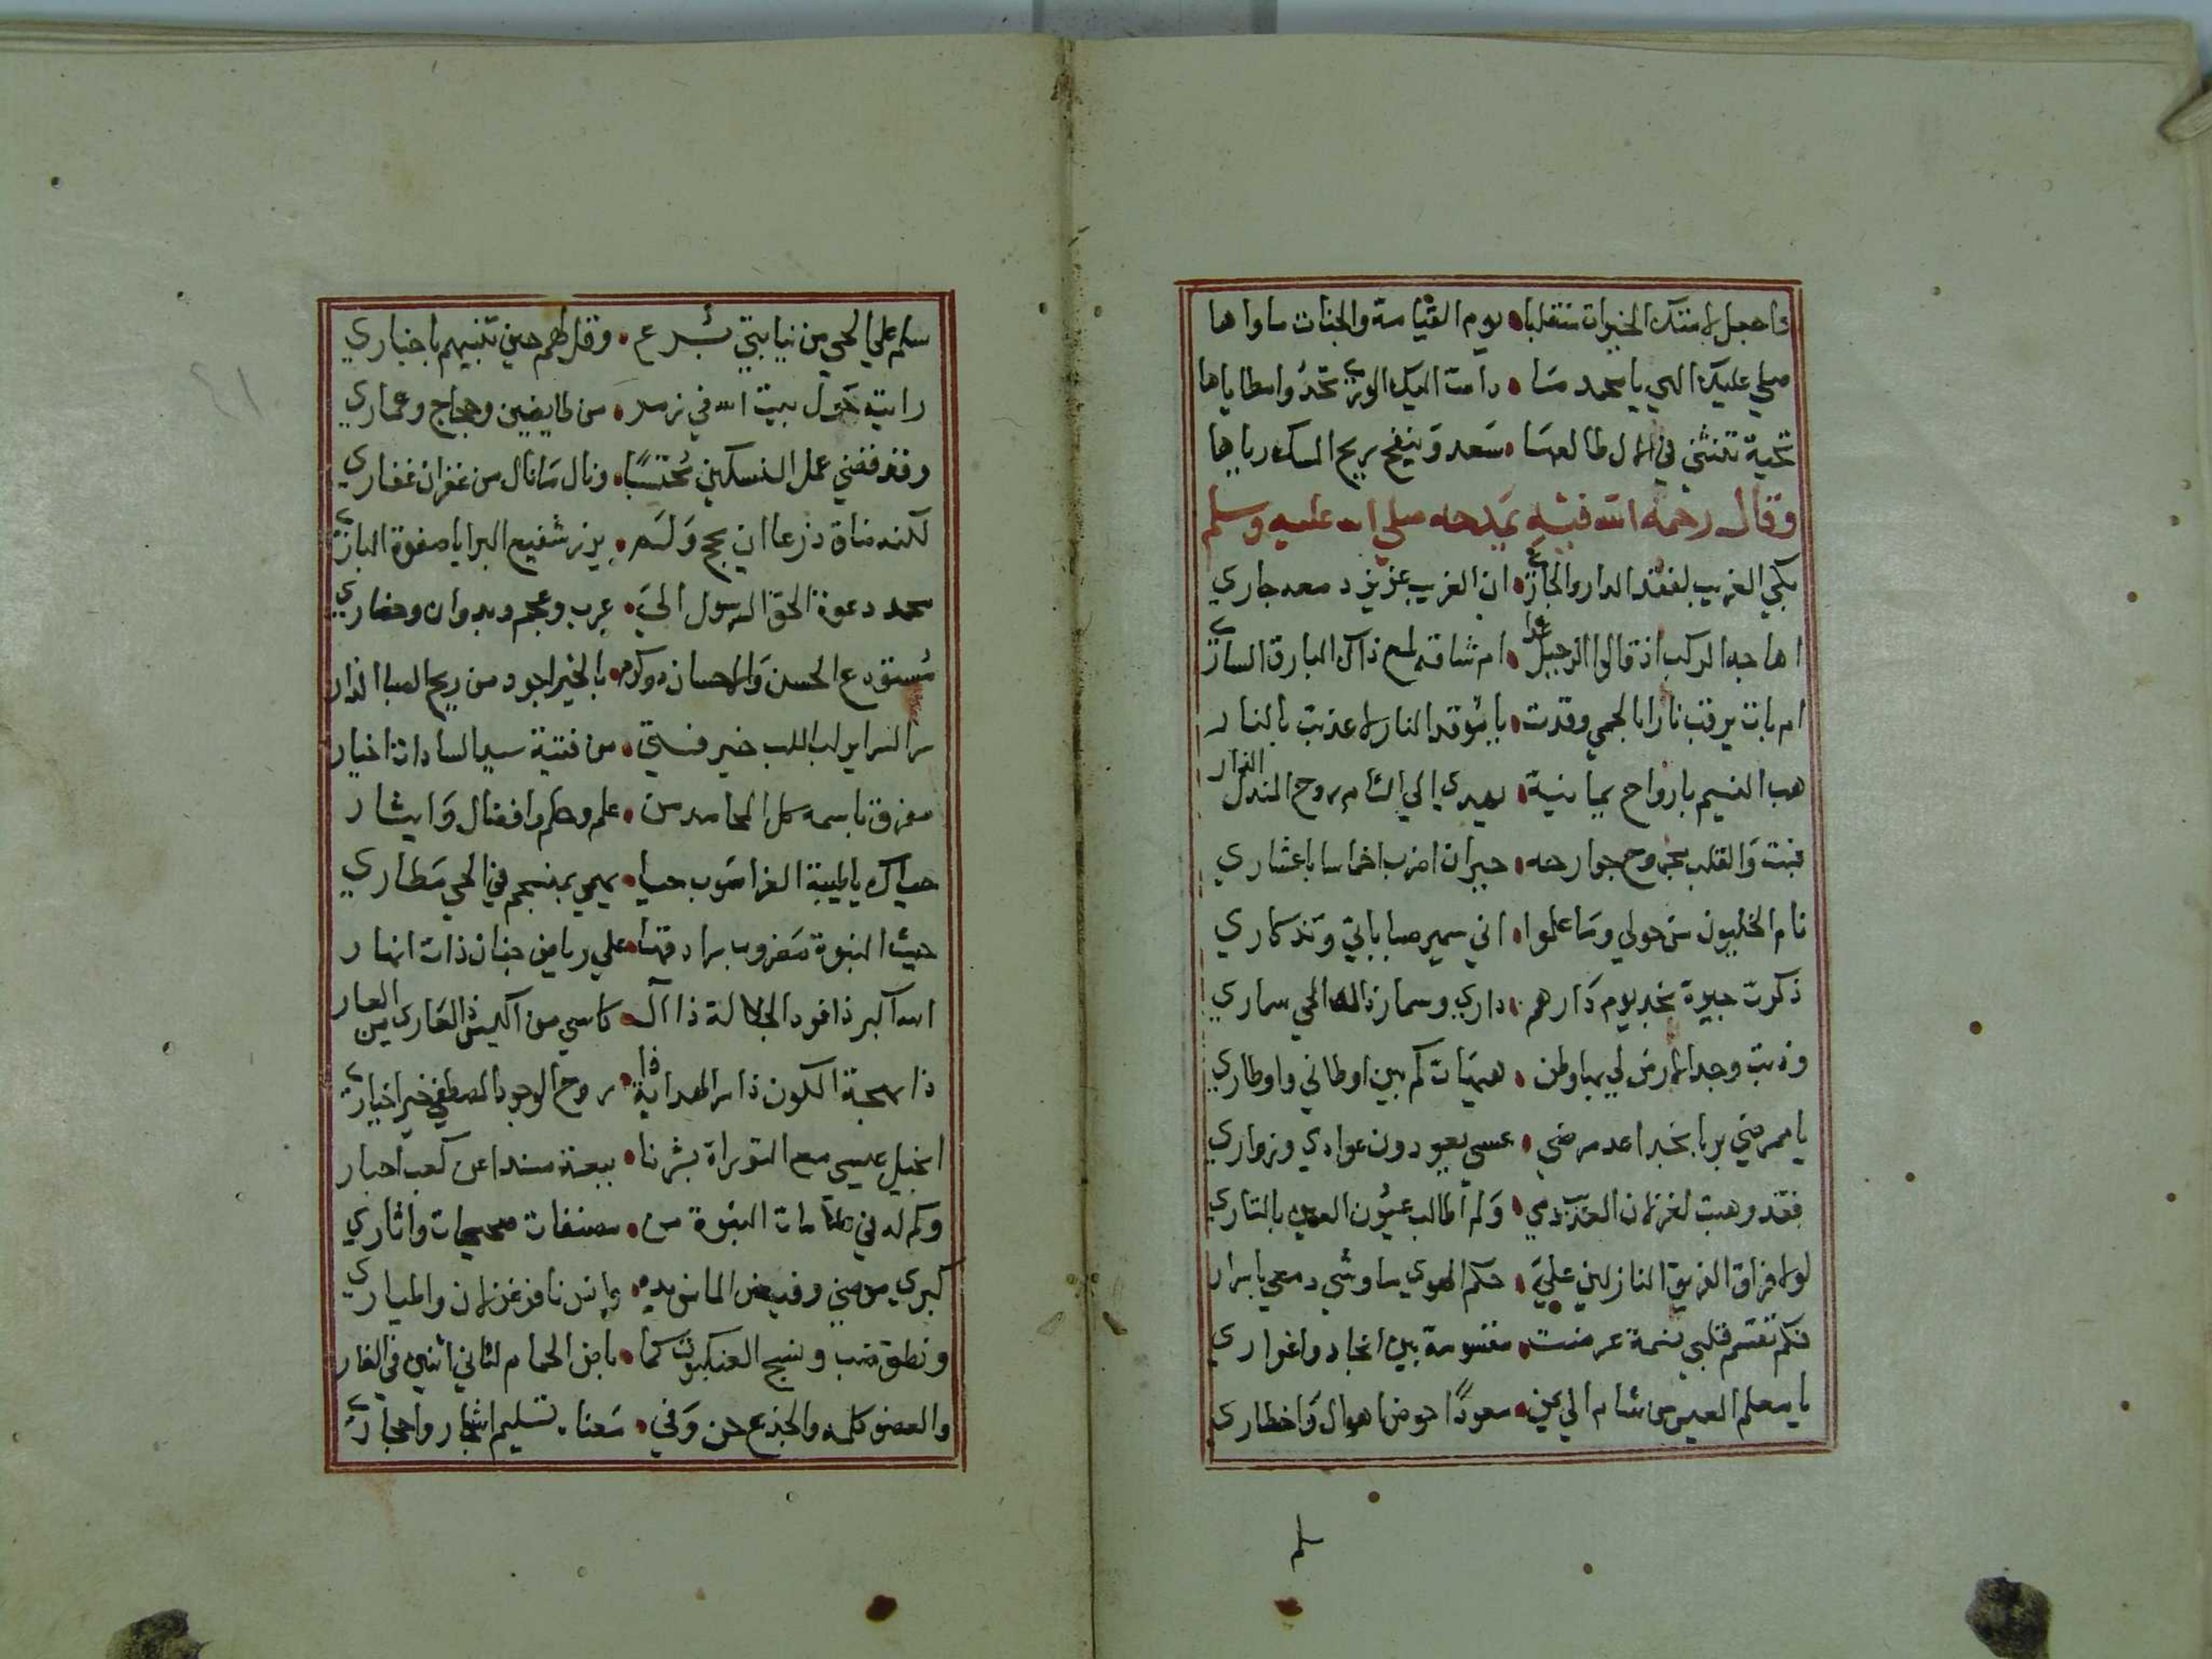 فاجعل لامتك الخيرات منقلبا • يوم القيامة والجنات ماواها
صلي عليك الهي يا محمد ما • دامت اليك الوري تحدوا مطاياها
تحية تنثني في الال طالعها • سعد وينفح بريح المسك رياها
وقال رحمه الله فيه يمدحه صلي الله عليه وسلم
بكي الغريب لفقد الدار والجار • ان الغريب عزيز دمعه جاري
اهاجه الركب اذ قالوا الرحيل غدا • ام شاقه لمع ذاك البارق الساري
ام بات يرقب نارا بالحمي وقدت • يا موقد النار لا عذبت بالنار
هب النسيم بارواح يمانية • يهدي الي الشام روح المندل الغار
فبت والقلب مجروح جوارحه • حيران اضرب اخماسا باعشاري
نام الخليون من حولي وما علموا • اني سمير صباباتي وتذكاري
ذكرت جيرة نجد يوم دارهم • داري وسمار ذاك الحي سماري
وذبت وجدا لارض لي بها وطن • هيهات كم بين اوطاني واوطاري
يا ممرضي بربا نجد اعد مرضي • عسي يعودون عوادي وزواري
فقد وهبت لغزلان العذيب دمي • ولم اطالب عيون العين بالثاري
لولا فراق الفريق النازلين علي • حكم الهوي ما وشي دمعي باسرار
فكم تقسم قلبي نسمة عرضت • مقسومة بين انجاد واغواري
يا معلم العيس من شام الي يمن • معودا خوض اهوال واخطاري
سلم
سلم علي الحي من نيابتي برع • وقل لهم حين تنبيهم باخباري
رايته حول بيت الله في زمر • من طايفين وحجاج وعماري
وقد قضي عمل النسكين محتسبا • ونال ما نال من غفران غفاري
لكنه ضاق ذرعا ان يحج ولم • يزر شفيع البرايا صفوة الباري
محمد دعوة الحق الرسول الي • عرب وعجم وبدوان وحضاري
مستودع الحسن والاحسان ذو كرم • بالخير اجود من ريح الصبا الذار
سر السراير لب اللب خير فتي • من فتية سيد السادات اخيار
مفرق باسمه كل المحامد من • علم وحلم وافضال وايثار
حياك يا طيبة الغرا صوب حيا • يهمي بمنسجم في الحي مطاري
حيث النبوة مضروب سرادقها • علي رياض جنان ذات انهار
الله اكبر ذا نور الجلالة ذا ال • كاسي من العار ذا العاري من العار
ذا بهجة الكون ذا سر الهداية ذا • روح الوجود المصطفي خير اخياري
انجيل عيسي مع التوراة بشرنا • ببعثه مسندا عن كعب احبار
وكم له في مقامات النبوة من • مصنفات صحيحات واثاري
كبري موضي وفيض الما من يده • وانس نافر غزلان واطياري
ونطق ضب ونسج العنكبوت كما • باض الحمام لثاني اثنين في الغار
والعضو كلمه والجذع حن وفي • معنا • تسليم اشجار واحجاري